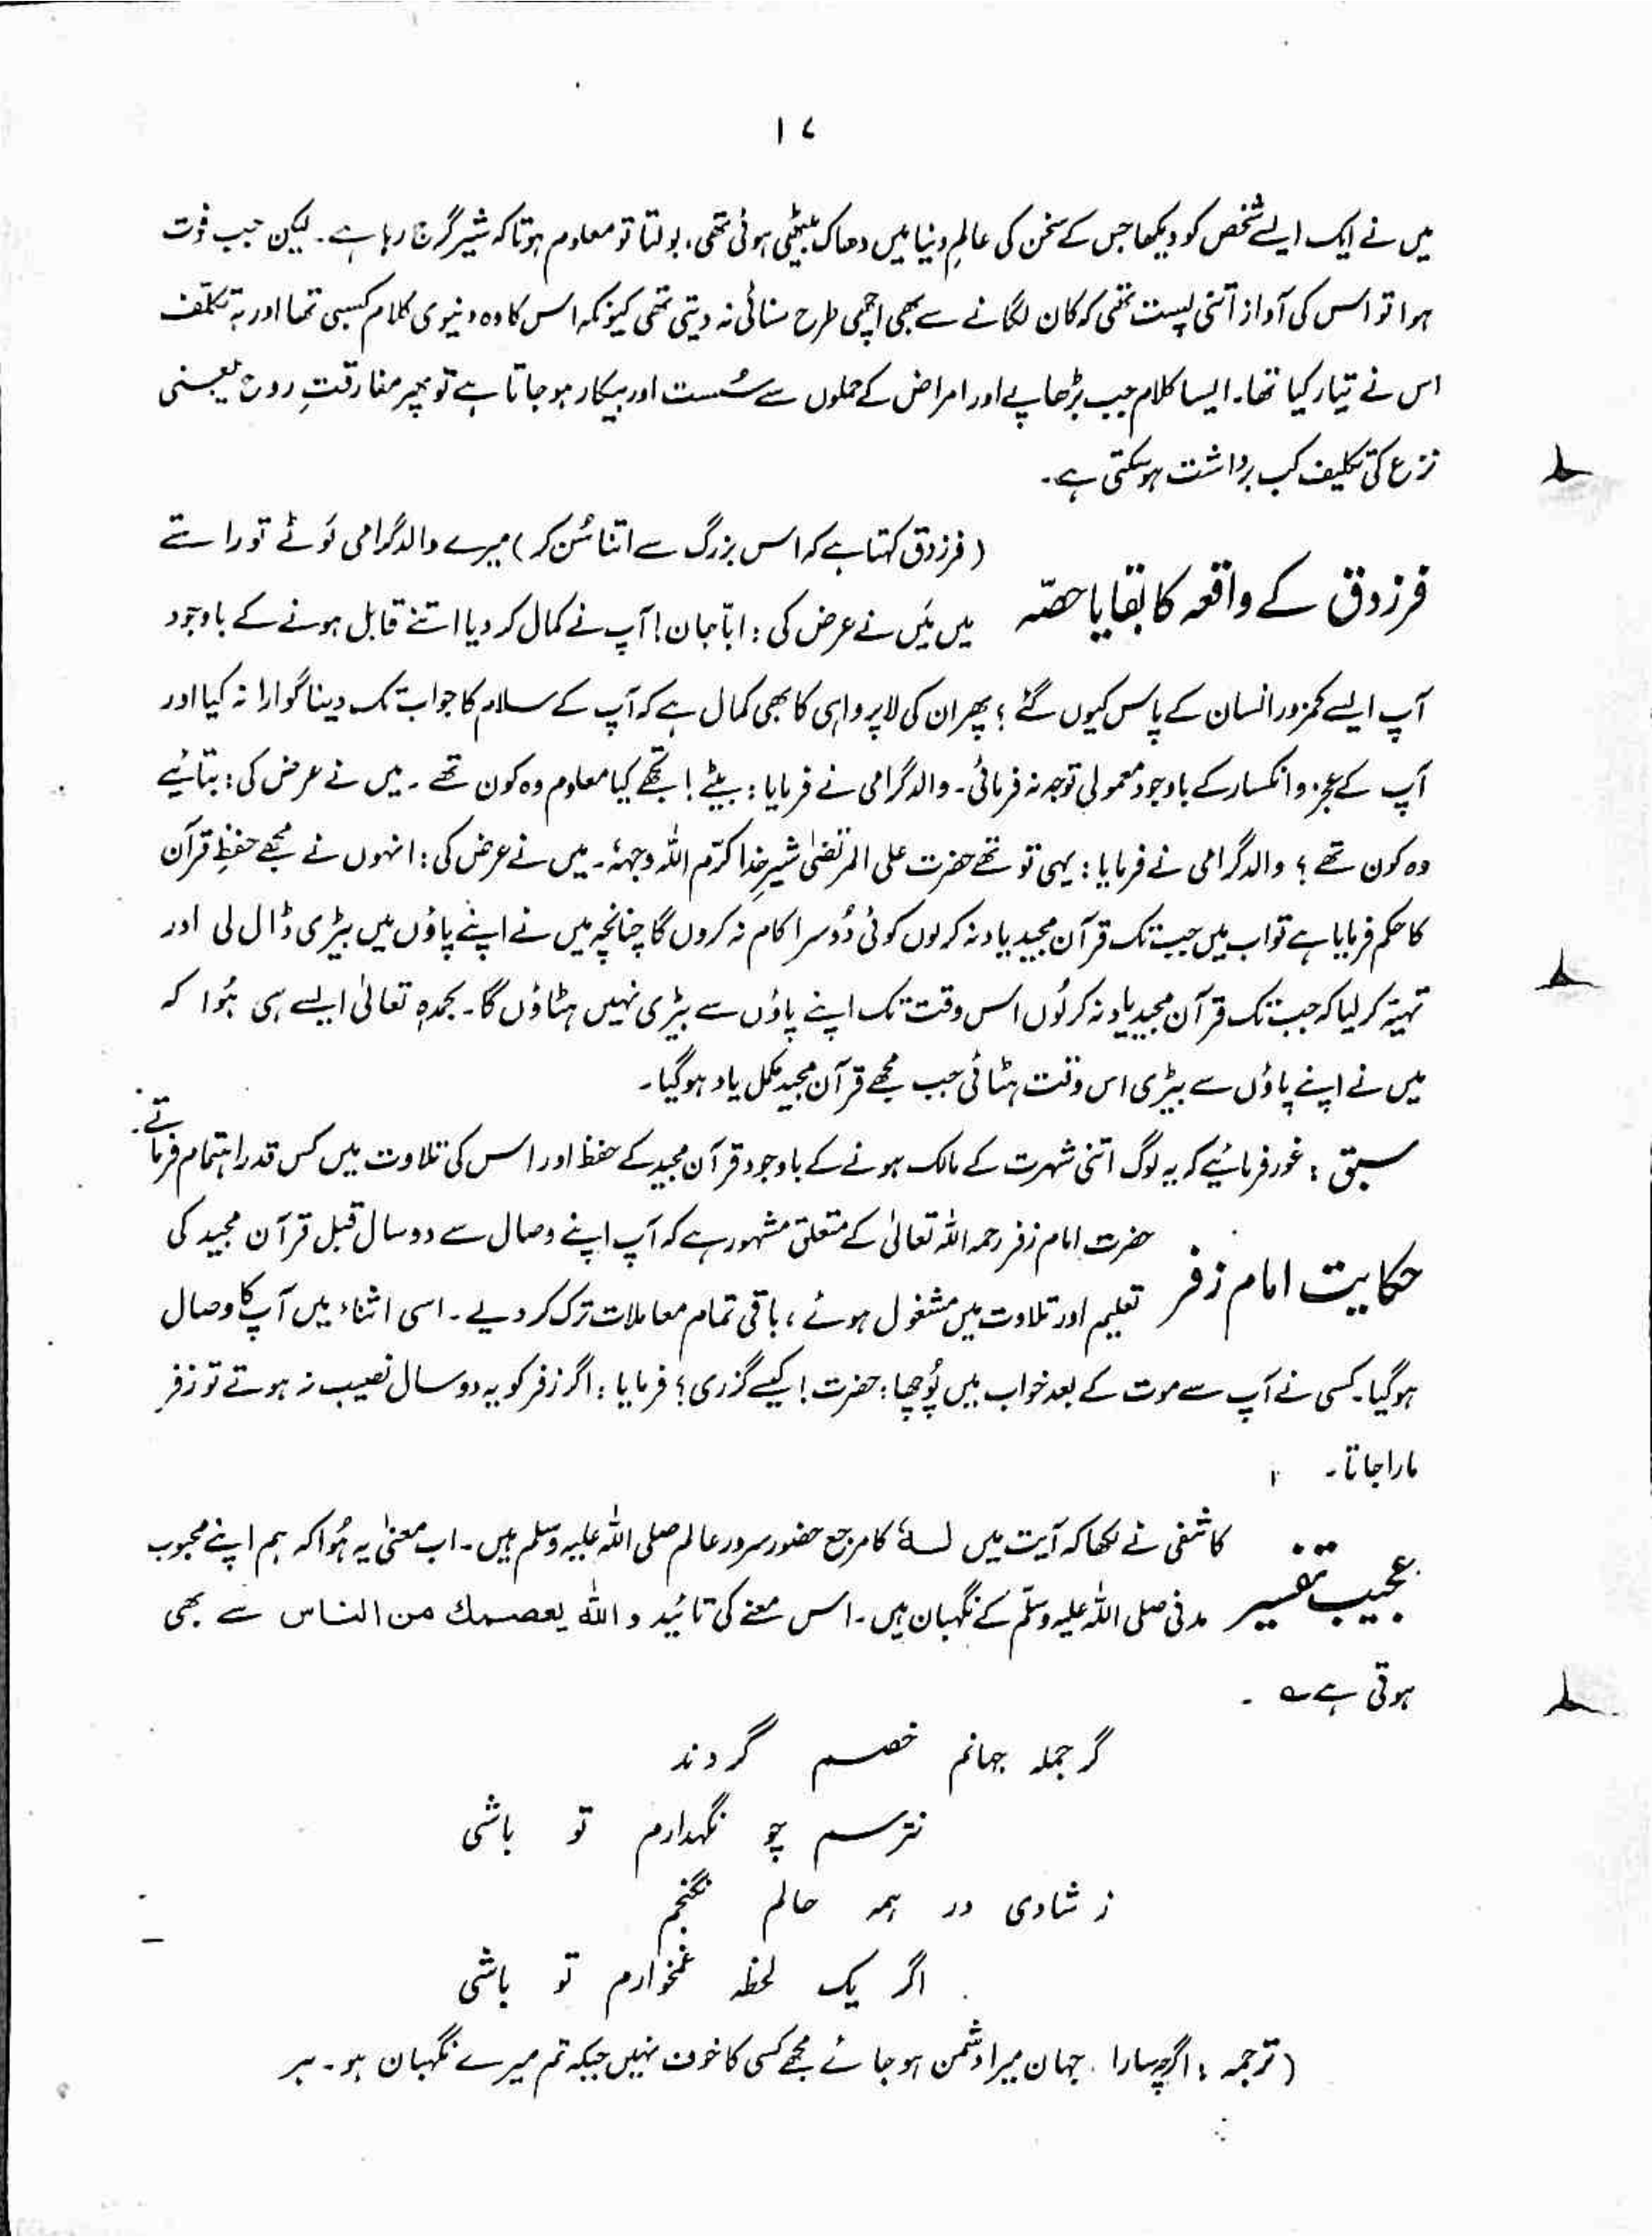 ۱۷
میں نے ایک ایسے شخص کو دیکھا جس کے سخن کی عالمِ دنیا میں دھاک بیٹھی ہوئی تھی، بولتا تو معلوم ہوتا کہ شیر گرج رہا ہے۔ لیکن جب فوت
ہوا تو اس کی آواز اتنی پست تھی کہ کان لگانے سے بھی اچھی طرح سنائی نہ دیتی تھی کیونکہ اس کا وہ دنیوی کلام کسبی تھا اور بہ تکلّف
اس نے تیار کیا تھا۔ ایسا کلام جب بڑھاپے اور امراض کے حملوں سے سُست اور بیکار ہو جاتا ہے تو پھر مفارقتِ روح یعنی
نزع کی تکلیف کب برداشت ہو سکتی ہے۔
فرزدق کے واقعہ کا بقایا حصّہ
(فرزدق کہتا ہے کہ اس بزرگ سے اتنا سُن کر) میرے والد گرامی لَوٹے تو راستے
میں مَیں نے عرض کی: ابّا جان! آپ نے کمال کر دیا اتنے قابل ہونے کے باوجود
آپ ایسے کمزور انسان کے پاس کیوں گئے؟ پھر ان کی لاپرواہی کا بھی کمال ہے کہ آپ کے سلام کا جواب تک دینا گوارا نہ کیا اور
آپ کے عجز و انکسار کے باوجود معمولی توجہ نہ فرمائی۔ والد گرامی نے فرمایا: بیٹے! تجھے کیا معلوم وہ کون تھے۔ میں نے عرض کی: بتائیے
وہ کون تھے؟ والد گرامی نے فرمایا: یہی تو تھے حضرت علی المرتضیٰ شیرِ خدا کرّم اللہ وجہہٗ۔ میں نے عرض کی: انہوں نے مجھے حفظِ قرآن
کا حکم فرمایا ہے تو اب میں جب تک قرآن مجید یاد نہ کر لوں کوئی دُوسرا کام نہ کروں گا چنانچہ میں نے اپنے پاؤں میں بیڑی ڈال لی اور
تہیّہ کر لیا کہ جب تک قرآن مجید یاد نہ کر لُوں اس وقت تک اپنے پاؤں سے بیڑی نہیں ہٹاؤں گا۔ بحمدہٖ تعالیٰ ایسے ہی ہُوا کہ
میں نے اپنے پاؤں سے بیڑی اس وقت ہٹائی جب مجھے قرآن مجید مکمل یاد ہو گیا۔
سبق: غور فرمائیے کہ یہ لوگ اتنی شہرت کے مالک ہونے کے باوجود قرآن مجید کے حفظ اور اس کی تلاوت میں کس قدر اہتمام فرماتے۔
حکایت امام زفر
حضرت امام زفر رحمہ اللہ تعالیٰ کے متعلق مشہور ہے کہ آپ اپنے وصال سے دو سال قبل قرآن مجید کی
تعلیم اور تلاوت میں مشغول ہوئے، باقی تمام معاملات ترک کر دیے۔ اسی اثناء میں آپ کا وصال
ہو گیا۔ کسی نے آپ سے موت کے بعد خواب میں پُوچھا: حضرت! کیسے گزری؟ فرمایا: اگر زفر کو یہ دو سال نصیب نہ ہوتے تو زفر
مارا جاتا۔
عجیب تفسیر
کاشفی نے لکھا کہ آیت میں لہٗ کا مرجع حضور سرور عالم صلی اللہ علیہ وسلم ہیں۔ اب معنیٰ یہ ہُوا کہ ہم اپنے محبوب
مدنی صلی اللہ علیہ وسلّم کے نگہبان ہیں۔ اس معنے کی تائید واللہ یعصمك من الناس سے بھی
ہوتی ہے ؎۔
گر جملہ جہانم خصم گردند
نترسم چو نگہدارم تو باشی
ز شادی در ہمہ حالم نگنجم
اگر یک لحظہ غمخوارم تو باشی
(ترجمہ: اگرچہ سارا جہان میرا دشمن ہو جائے مجھے کسی کا خوف نہیں جبکہ تم میرے نگہبان ہو۔ ہر